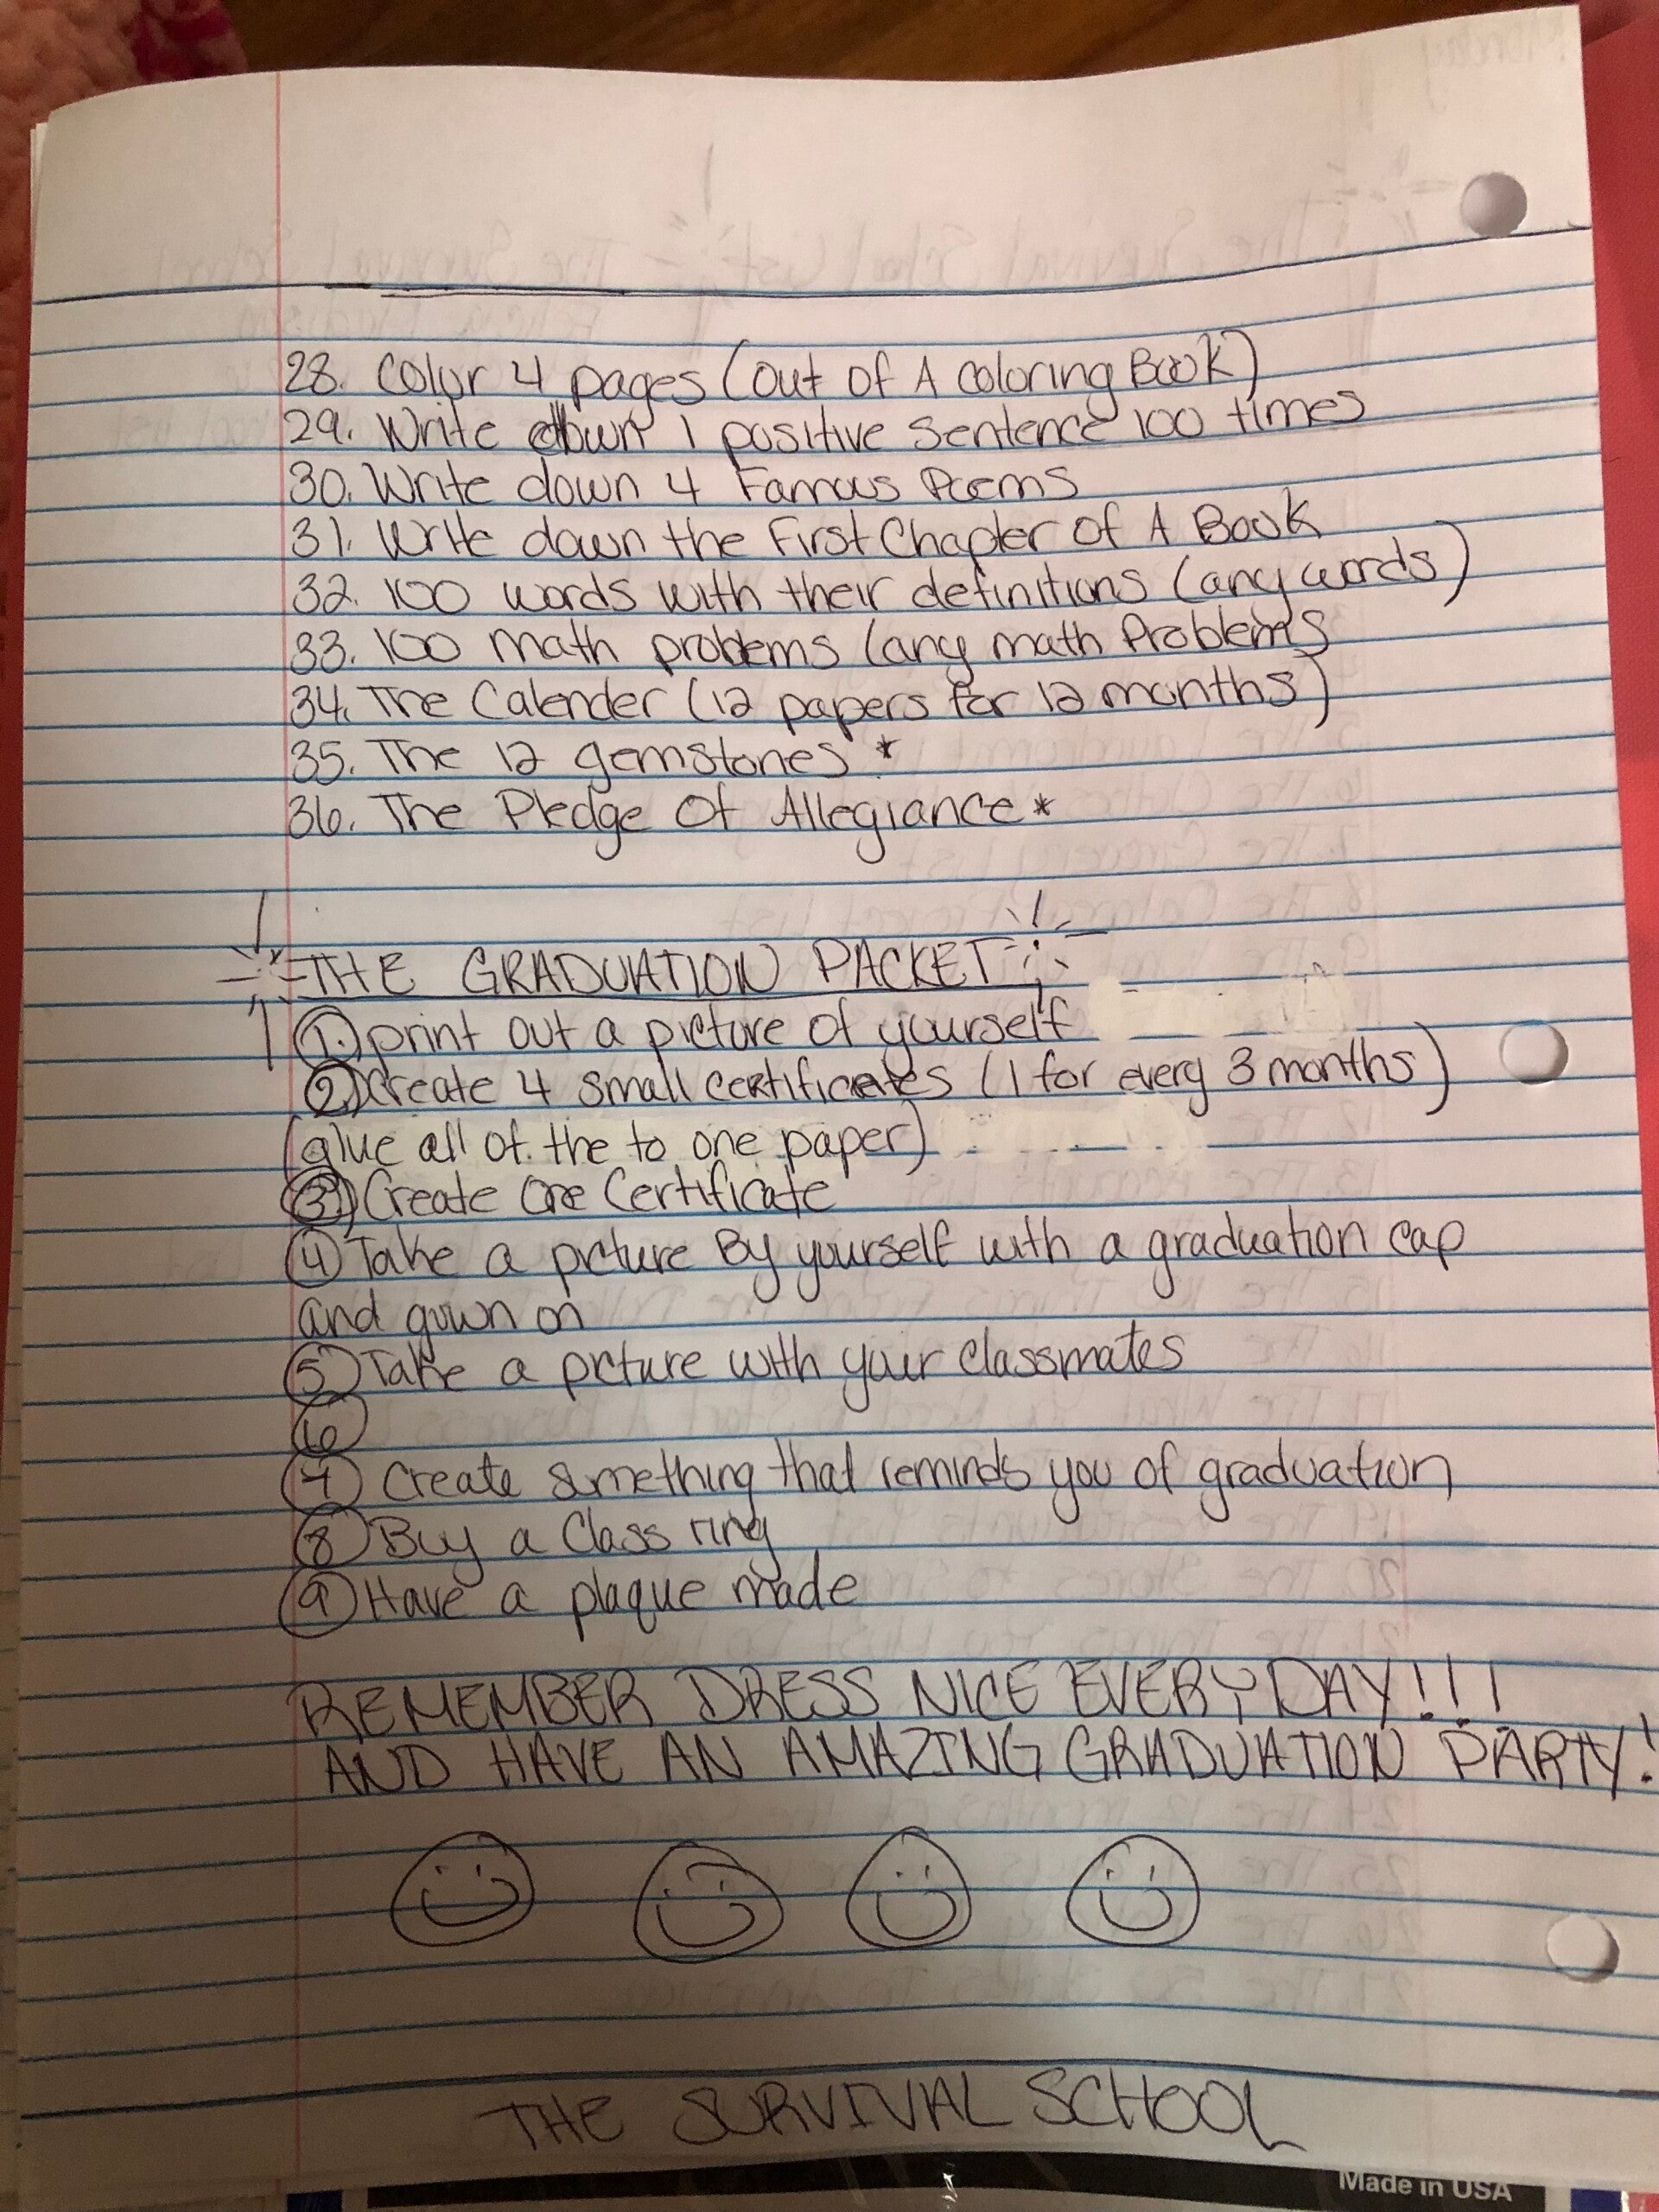 28. Color 4 pages (Out Of A Coloring Book)
29. Write down 1 positive Sentence 100 times
30. Write down 4 Famous Poems
31. Write down the First Chapter Of A Book
32. 100 words with their definitions (any words)
33. 100 math problems (any math Problems
34. The Calender (12 papers for 12 months)
35. The 12 gemstones *
36. The Pledge Of Allegiance *
THE GRADUATION PACKET
1. print out a picture of yourself
2. Create 4 small certificates (1 for every 3 months)
(glue all of the to one paper)
3. Create One Certificate
4 Take a picture By yourself with a graduation cap
and gown on
5 Take a picture with your classmates
6
7 Create something that reminds you of graduation
8 Buy a Class ring
9 Have a plaque made
REMEMBER DRESS NICE EVERYDAY!!!
AND HAVE AN AMAZING GRADUATION PARTY!
THE SURVIVAL SCHOOL
Made in USA